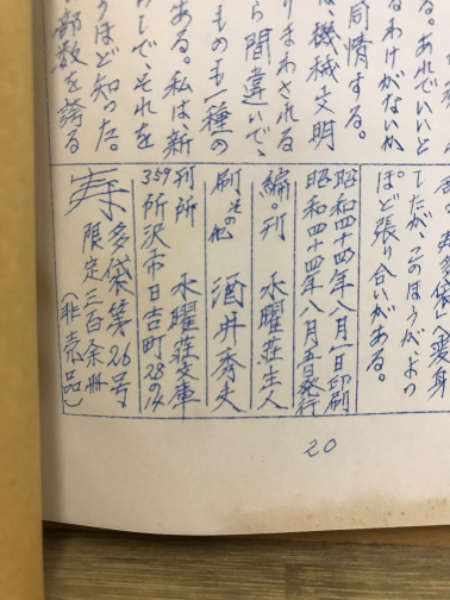 る。あれでいいと
るわけがないか
同情する。
機械文明
りまわされる
ら間違いで、
ものも一種の
ある。私は、新
しで、それを
うほど知った。
部数を誇る
多袋」へ変身
したが、このほうが、よっ
ぽど張り合いがある。
昭和四十四年八月一日印刷
昭和四十四年八月五日発行
編。刊 水曜荘主人
刷その他 酒井秀夫
刊所 水曜荘文庫
359 所沢市日吉町28の14
寿多袋第26号、
限定三百余冊
(非売品)
20